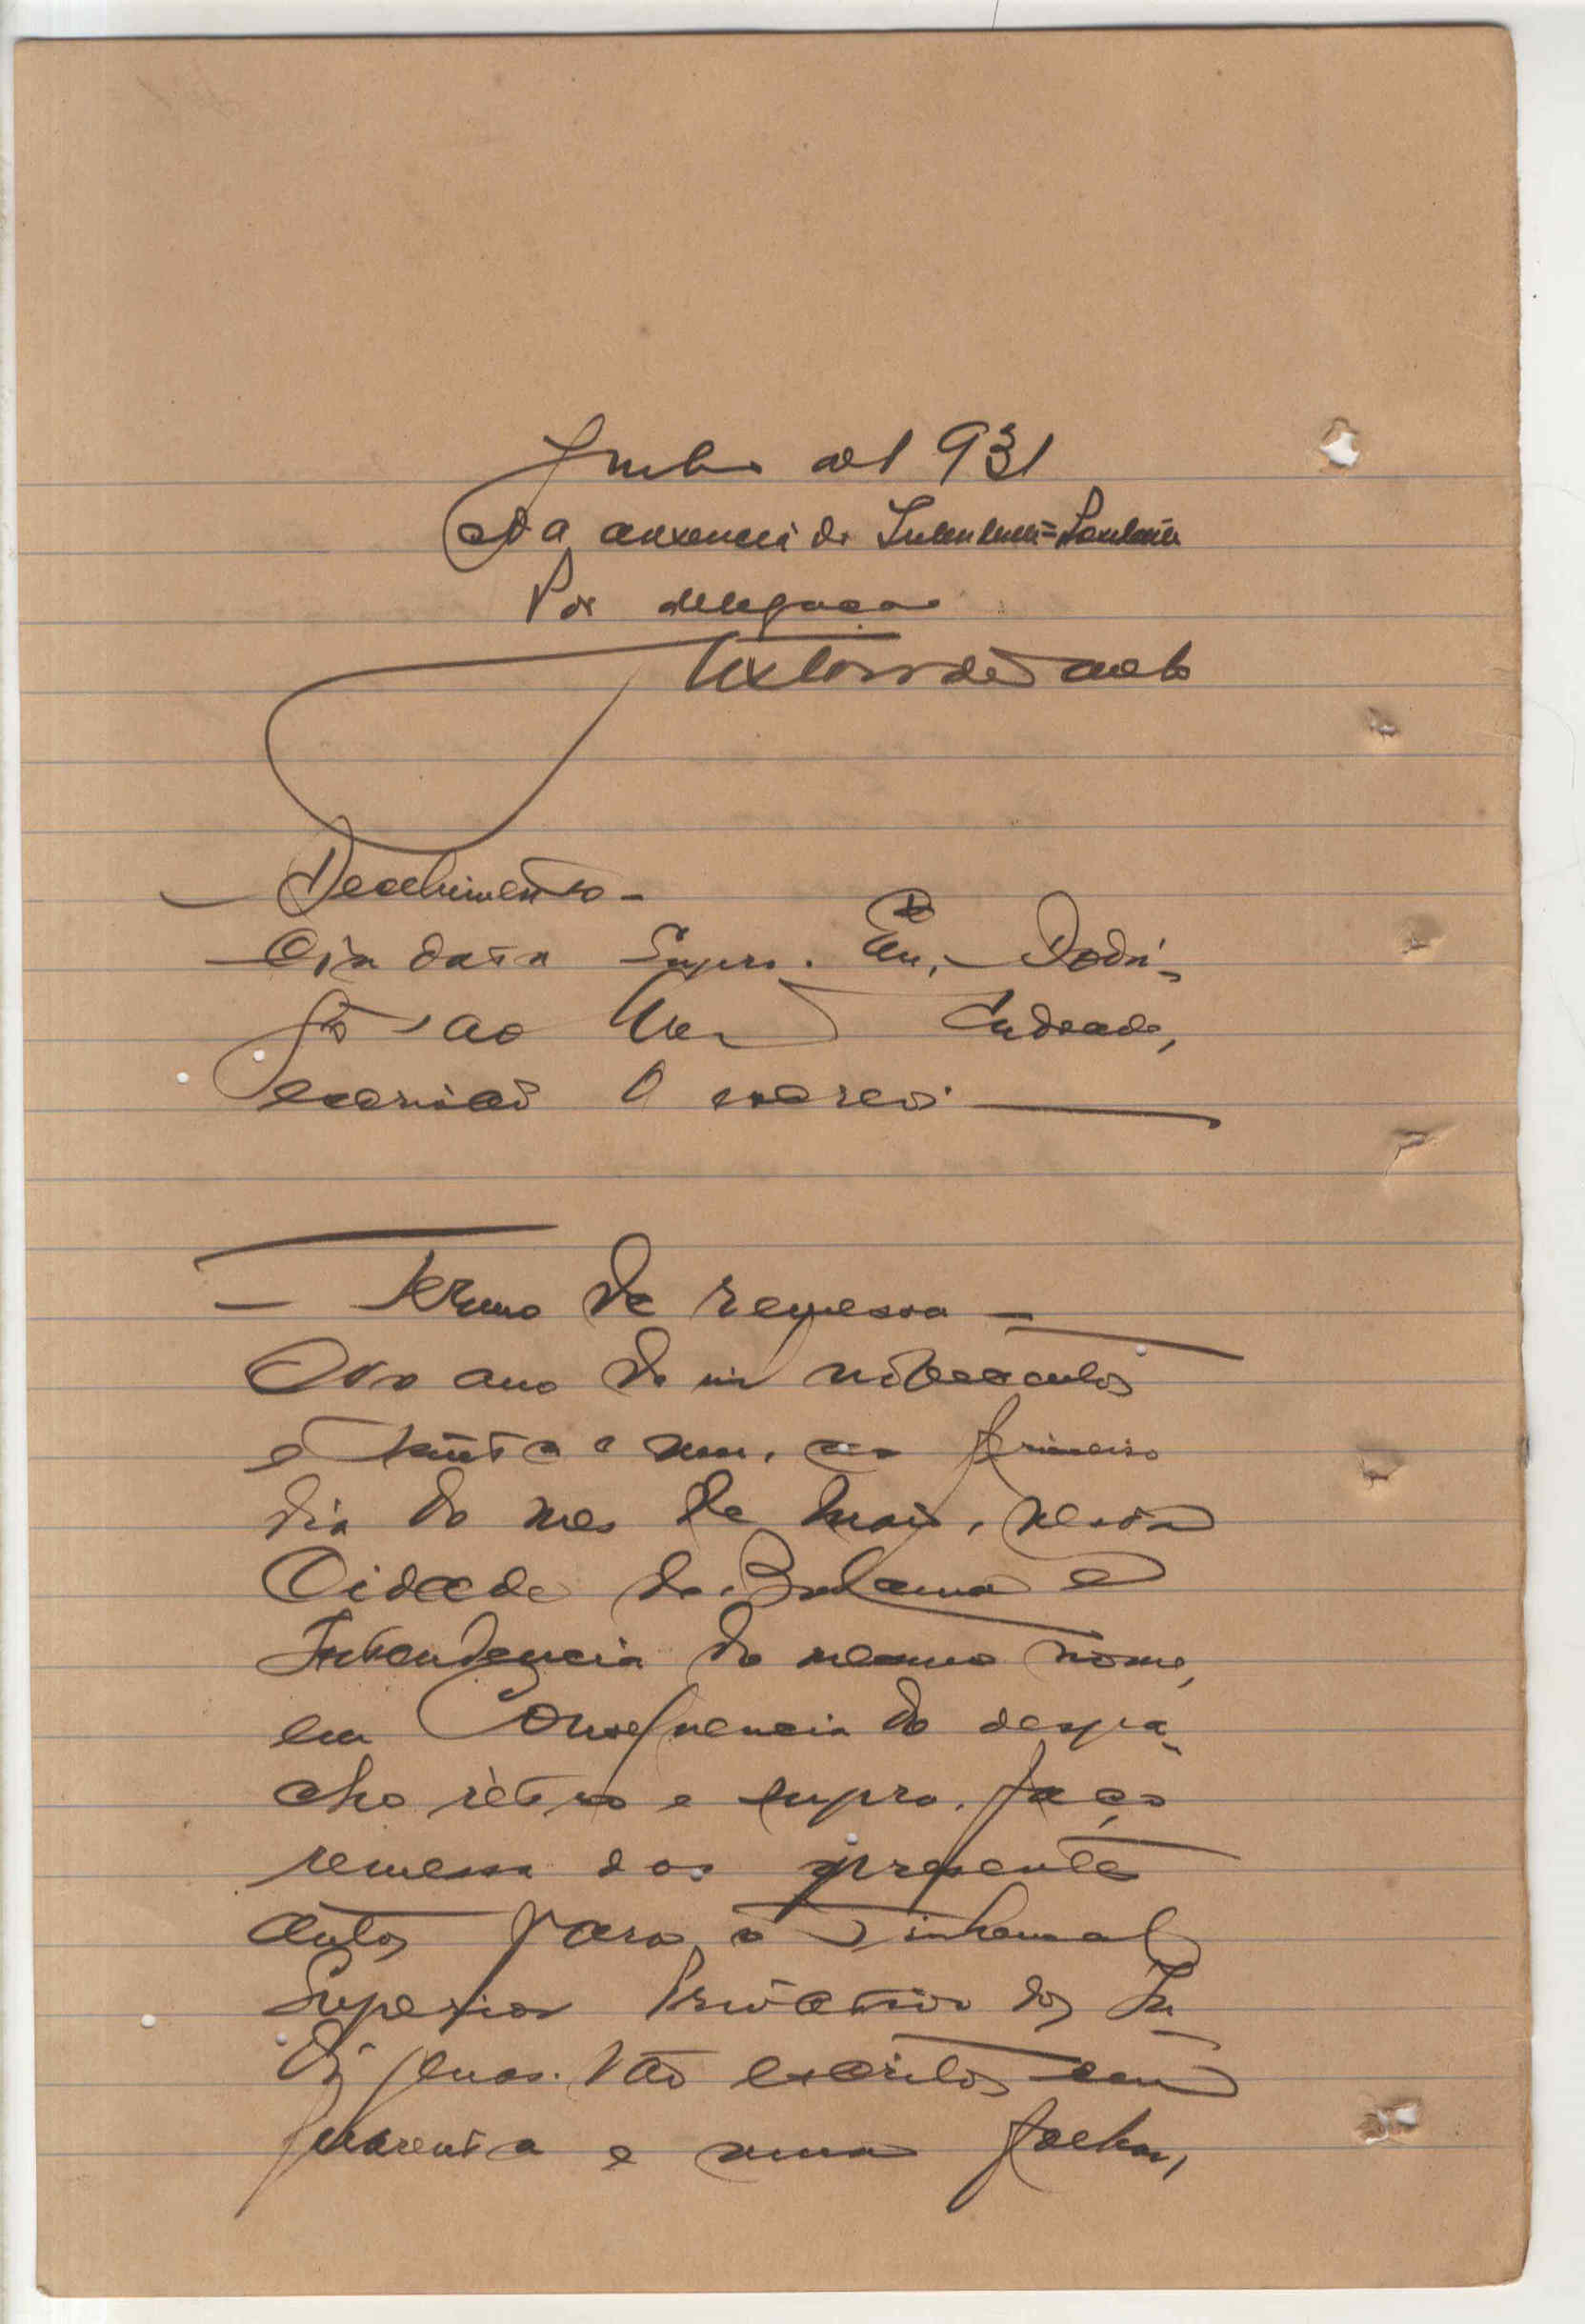 Junho de 1931
Na ausencia do Intendente
Por delegação
— Recebimento —
Em data supra. Eu, Rodri-
go Andrade,
escrivão o escrevi.
— Termo de remessa —
No ano de mil novecentos
e trinta e um, ao primeiro
dia do mes de Maio, nesta
Cidade de Bolama e
Intendencia do mesmo nome,
em Consequencia do despa-
cho rétro e supra, faço
remessa dos presente
autos para o Tribunal
Superior Privativo dos In
digenas. Vão escritos em
quarenta e uma folhas,